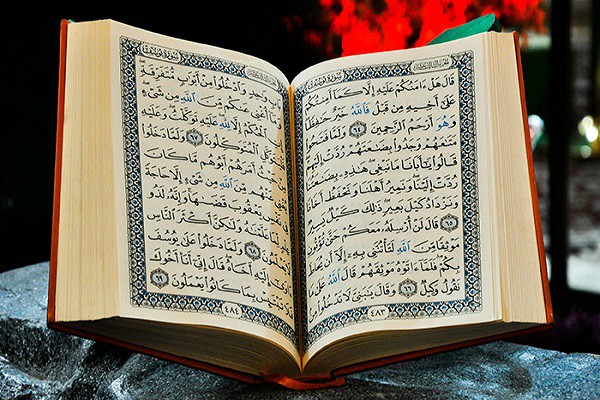 سُورَةُ يُوسُفَ
قَالَ هَلْ ءَامَنُكُمْ عَلَيْهِ إِلَّا كَمَآ أَمِنتُكُمْ
عَلَىٰٓ أَخِيهِ مِن قَبْلُ فَٱللَّهُ خَيْرٌ حَٰفِظًا
وَهُوَ أَرْحَمُ ٱلرَّٰحِمِينَ ٦٤ وَلَمَّا فَتَحُوا۟
مَتَٰعَهُمْ وَجَدُوا۟ بِضَٰعَتَهُمْ رُدَّتْ إِلَيْهِمْ
قَالُوا۟ يَٰٓأَبَانَا مَا نَبْغِى هَٰذِهِۦ بِضَٰعَتُنَا
رُدَّتْ إِلَيْنَا وَنَمِيرُ أَهْلَنَا وَنَحْفَظُ أَخَانَا
وَنَزْدَادُ كَيْلَ بَعِيرٍ ذَٰلِكَ كَيْلٌ يَسِيرٌ ٦٥
قَالَ لَنْ أُرْسِلَهُۥ مَعَكُمْ حَتَّىٰ تُؤْتُونِ
مَوْثِقًا مِّنَ ٱللَّهِ لَتَأْتُنَّنِى بِهِۦٓ إِلَّآ أَن يُحَاطَ
بِكُمْ فَلَمَّآ ءَاتَوْهُ مَوْثِقَهُمْ قَالَ ٱللَّهُ عَلَىٰ مَا
نَقُولُ وَكِيلٌ ٦٦ وَقَالَ يَٰبَنِىَّ لَا تَدْخُلُوا۟ مِنۢ
٤٨٣
سُورَةُ يُوسُفَ
بَابٍ وَٰحِدٍ وَٱدْخُلُوا۟ مِنْ أَبْوَٰبٍ مُّتَفَرِّقَةٍ
وَمَآ أُغْنِى عَنكُم مِّنَ ٱللَّهِ مِن شَىْءٍ
ٱلْحُكْمُ إِلَّا لِلَّهِ عَلَيْهِ تَوَكَّلْتُ وَعَلَيْهِ
فَلْيَتَوَكَّلِ ٱلْمُتَوَكِّلُونَ ٦٧ وَلَمَّا دَخَلُوا۟
حَيْثُ أَمَرَهُمْ أَبُوهُم مَّا كَانَ
عَنْهُم مِّنَ ٱللَّهِ مِن شَىْءٍ إِلَّا حَاجَةً
نَفْسِ يَعْقُوبَ قَضَىٰهَا وَإِنَّهُۥ لَذُو
لِّمَا عَلَّمْنَٰهُ وَلَٰكِنَّ أَكْثَرَ ٱلنَّاسِ
يَعْلَمُونَ ٦٨ وَلَمَّا دَخَلُوا۟ عَلَىٰ يُوسُفَ
إِلَيْهِ أَخَاهُ قَالَ إِنِّىٓ أَنَا۠ أَخُوكَ
تَبْتَئِسْ بِمَا كَانُوا۟ يَعْمَلُونَ ٦٩
٤٨٤